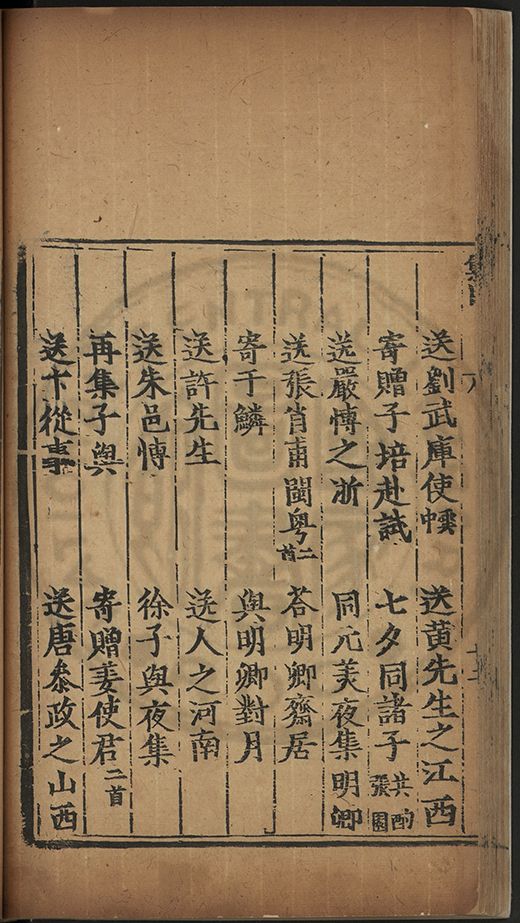 送劉武庫使㡓 送黄先生之江西
寄贈子培赴試 七夕同諸子共酌張園
送嚴慱之浙 同元美夜集明卿
送張肖甫閩粤二首 荅明卿齋居
寄于鱗 與明卿對月
送許先生 送人之河南
送朱邑慱 徐子與夜集
再集子與 寄贈姜使君二首
送卞從事 送唐叅政之山西